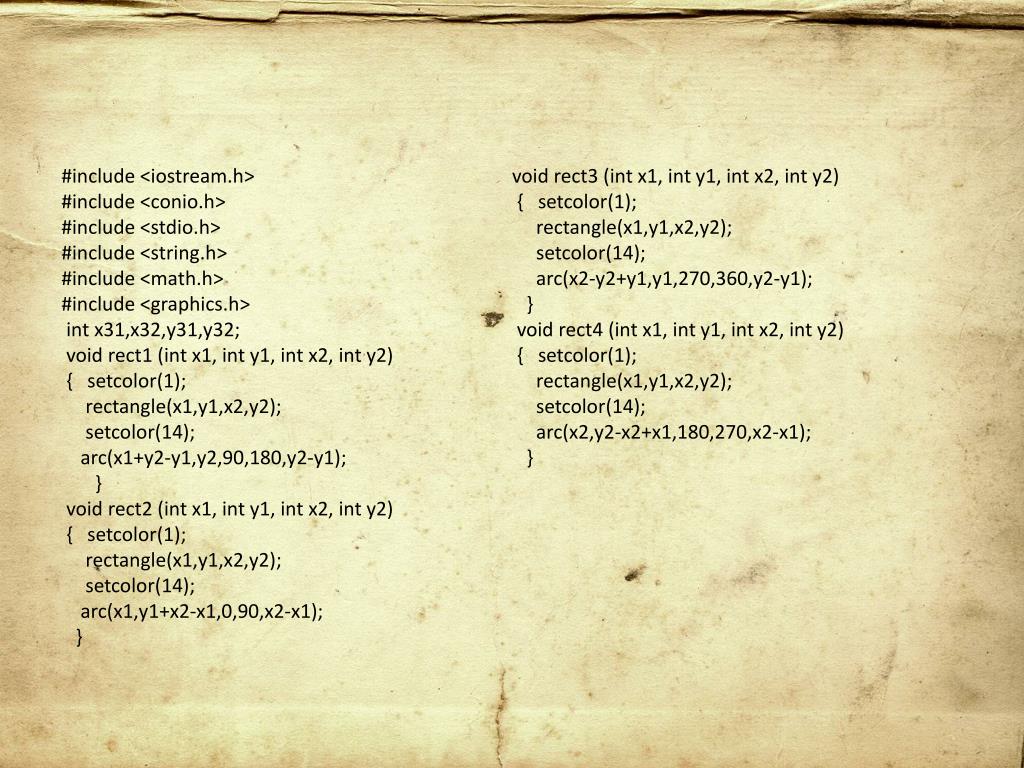 #include <iostream.h>
#include <conio.h>
#include <stdio.h>
#include <string.h>
#include <math.h>
#include <graphics.h>
int x31,x32,y31,y32;
void rect1 (int x1, int y1, int x2, int y2)
{ setcolor(1);
rectangle(x1,y1,x2,y2);
setcolor(14);
arc(x1+y2-y1,y2,90,180,y2-y1);
}
void rect2 (int x1, int y1, int x2, int y2)
{ setcolor(1);
rectangle(x1,y1,x2,y2);
setcolor(14);
arc(x1,y1+x2-x1,0,90,x2-x1);
}
void rect3 (int x1, int y1, int x2, int y2)
{ setcolor(1);
rectangle(x1,y1,x2,y2);
setcolor(14);
arc(x2-y2+y1,y1,270,360,y2-y1);
}
void rect4 (int x1, int y1, int x2, int y2)
{ setcolor(1);
rectangle(x1,y1,x2,y2);
setcolor(14);
arc(x2,y2-x2+x1,180,270,x2-x1);
}